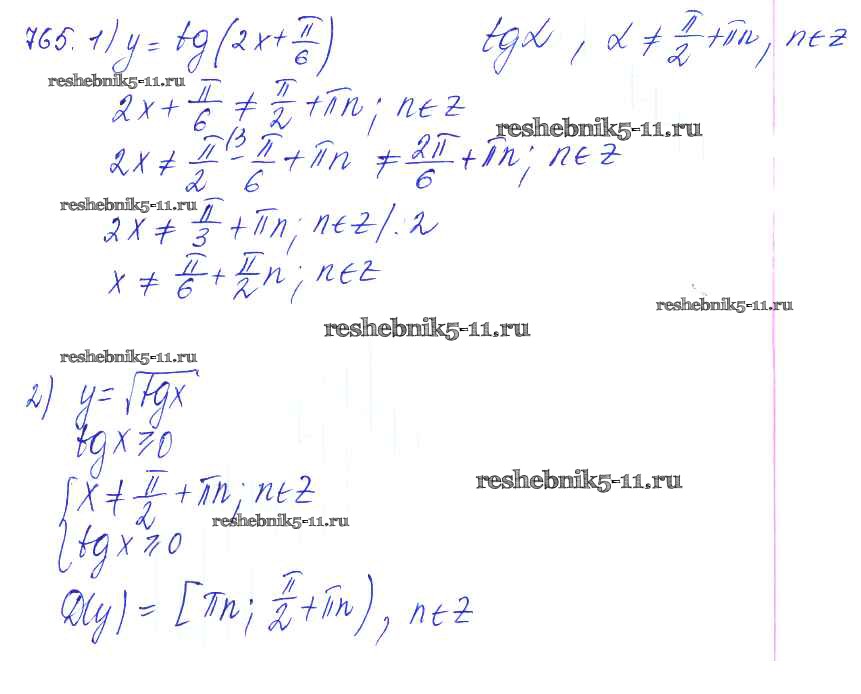 765. 1) y = tg(2x + π/6)    tgα, α ≠ π/2 + πn, n∈Z
reshebnik5-11.ru
2x + π/6 ≠ π/2 + πn; n∈Z
reshebnik5-11.ru
2x ≠ π/2 (3 - π/6 + πn ≠ 2π/6 + πn; n∈Z
reshebnik5-11.ru
2x ≠ π/3 + πn; n∈Z /: 2
x ≠ π/6 + π/2 n; n∈Z
reshebnik5-11.ru
reshebnik5-11.ru
reshebnik5-11.ru
2) y = √tgx
tgx ≥ 0
{ x ≠ π/2 + πn; n∈Z
reshebnik5-11.ru
reshebnik5-11.ru
tgx ≥ 0
D(y) = [πn; π/2 + πn), n∈Z